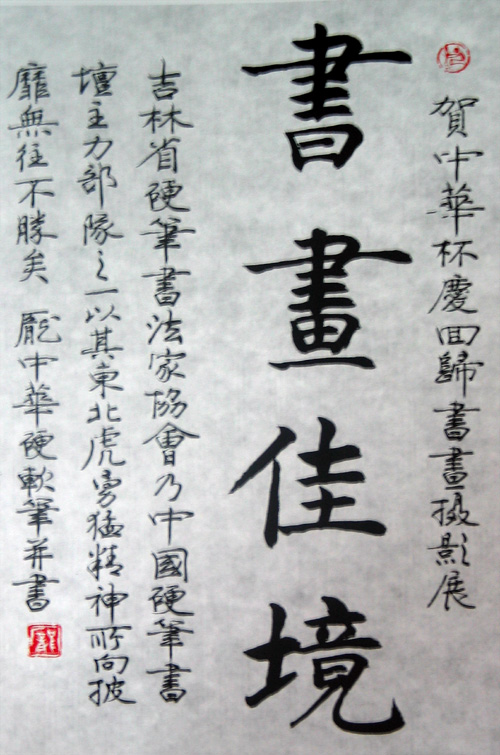 賀中華杯慶回歸書畫摄影展
書畫佳境
吉林省硬筆書法家協會乃中國硬筆書
壇主力部隊之一以其東北虎勇猛精神所向披
靡無往不勝矣 龐中華硬軟筆并書